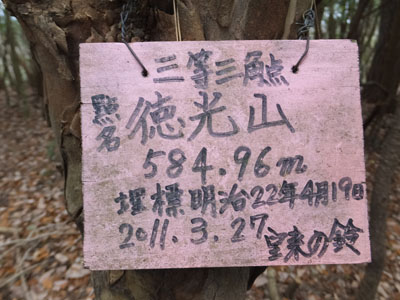 三等三角点
點名 徳光山
584.96m
埋標明治22年4月19日
2011.3.27 宝来の鈴